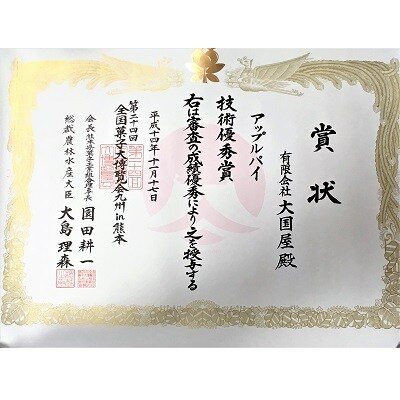 賞状
有限会社 大国屋 殿
アップルパイ
技術優秀賞
右は審査の成績優秀により之を授与する
平成十四年十一月十七日
第二十四回
全国菓子大博覧会九州in熊本
会長 熊本県菓子工業組合理事長 園田耕一
総裁 農林水産大臣 大島理森